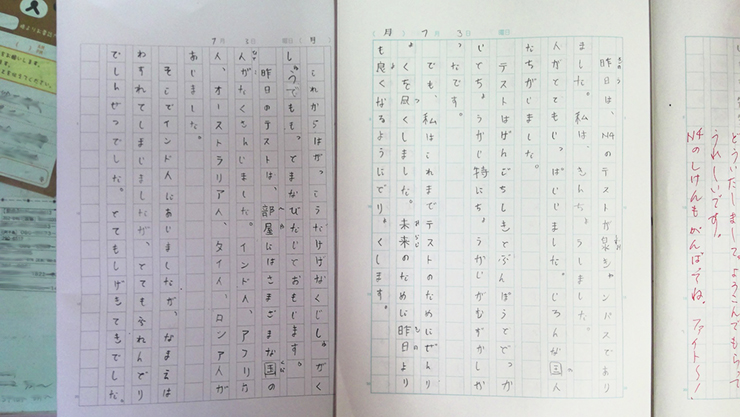 どういたしまして。よろこんでもらって
うれしいです。
N4のしけんもがんばってね。ファイト～！
(月) 7月 3日 曜日
昨日は、N4のテストが泉キャンパスであり
ました。私は、きんちょうしました。
人がとてもいっぱいいました。いろんな国人
たちがいました。
テストはげんごちしきとぶんぽうとどっか
いとちょうかい特にちょうかいがむずかしか
ったです。
でも、私はこれまでテストのためにぜんりょ
くを尽くしました。未来のために昨日より
も良くなるようにどりょくします。
7月 1日 曜日 (月)
これからはがっこうだけなくじしゅうがく
しゅうでもっとまなびたいとおもいます。
昨日のテストは、部屋にはさまざまな国の
人がたくさんいました。インド人、アフリカ
人、オーストラリア人、タイ人、ロシア人が
ありました。
そこでインド人にあいましたが、なまえは
わすれてしまいましたが、とてもふれんどり
でしんせつでした。とてもしげきてきでした。